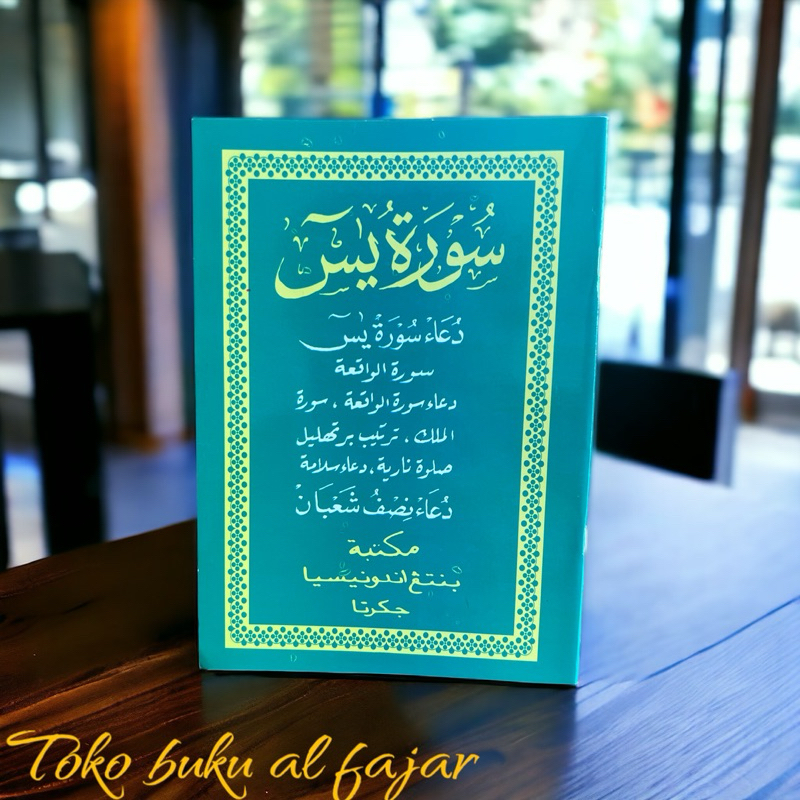 سُوْرَةُ يٰسٓ
دُعَاءْ سُوْرَةْ يٰسٓ
سورة الواقعة
دعاء سورة الواقعة ، سورة
الملك ، ترتيب برتهليل
صلوة نارية ، دعاء سلامة
دُعَاءْ نِصْفُ شَعْبَانْ
مكتبة
بنتڠ اندونيسيا
جكرتا
Toko buku al fajar